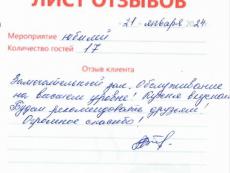 ЛИСТ ОТЗЫВОВ
21 января 2024.
Мероприятие юбилей
Количество гостей 17
Отзыв клиента
Замечательный зал. Обслуживание
на высшем уровне! Кухня вкусная.
Будем рекомендовать друзьям.
Огромное спасибо!